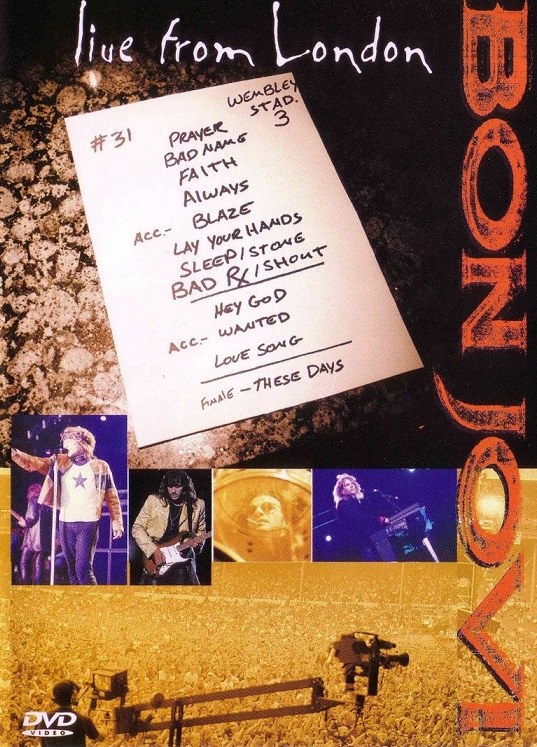 live from London
BON JOVI
WEMBLEY
STAD.
3
#31
PRAYER
BAD NAME
FAITH
ALWAYS
ACC.- BLAZE
LAY YOUR HANDS
SLEEP/STONE
BAD RX/SHOUT
HEY GOD
ACC- WANTED
LOVE SONG
FINALE - THESE DAYS
DVD
VIDEO